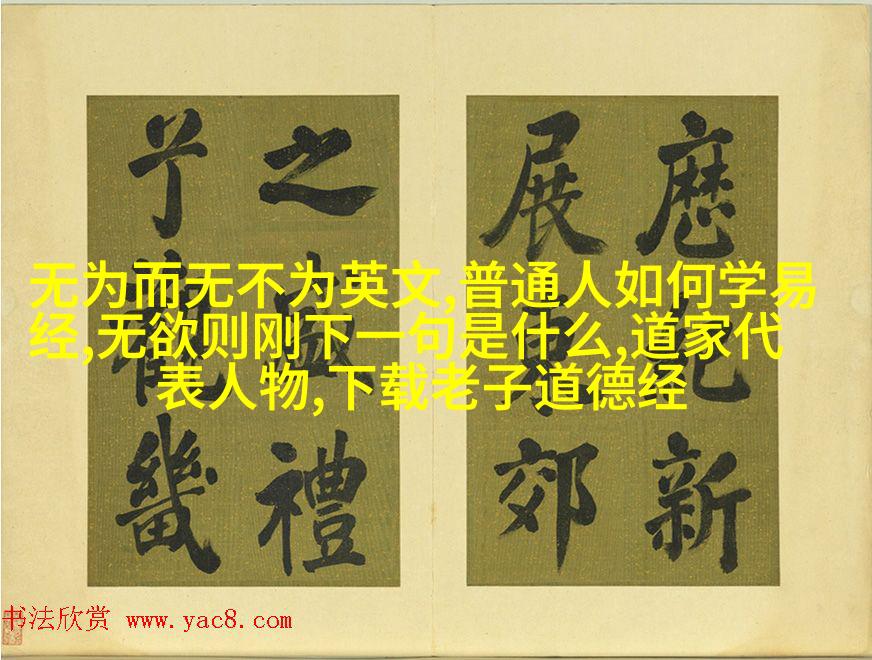 无为而无不为英文,普通人如何学易
经,无欲则刚下一句是什么,道家代
表人物,下载老子道德经
厯新
展東郊
之盛禮
觀畿
书法欣赏 www.yac8.com